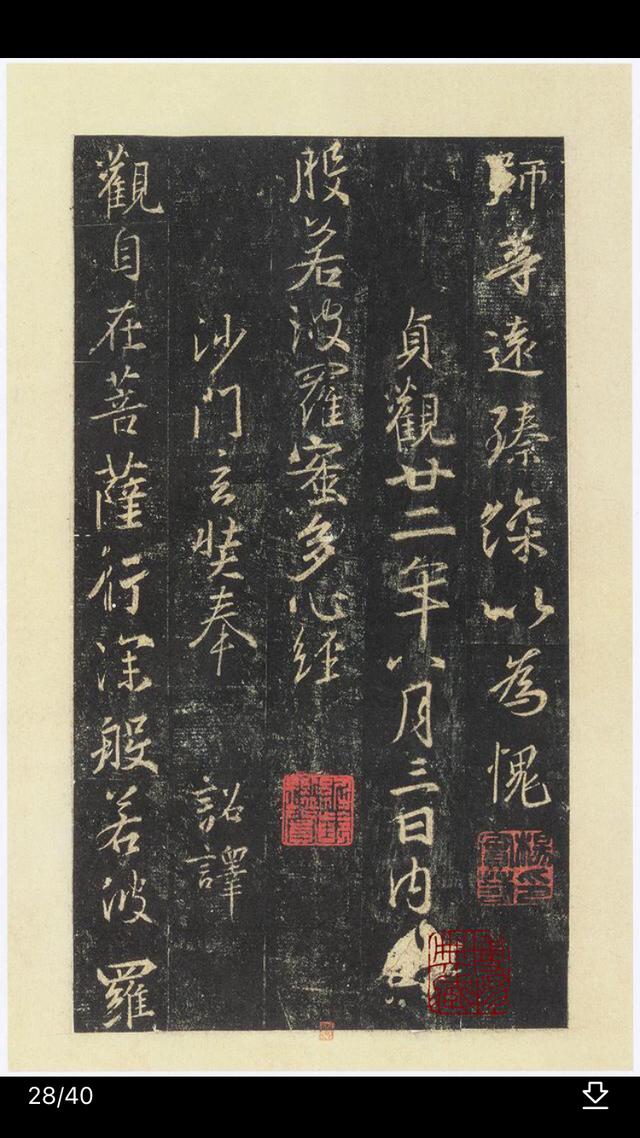 師等遠臻深以為愧
貞觀廿二年八月三日內
般若波羅蜜多心經
沙門玄奘奉 詔譯
觀自在菩薩行深般若波羅
28/40